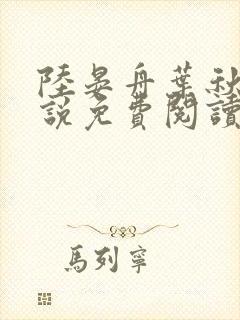 陸晏舟葉秋
說免費閱讀
馬列寧